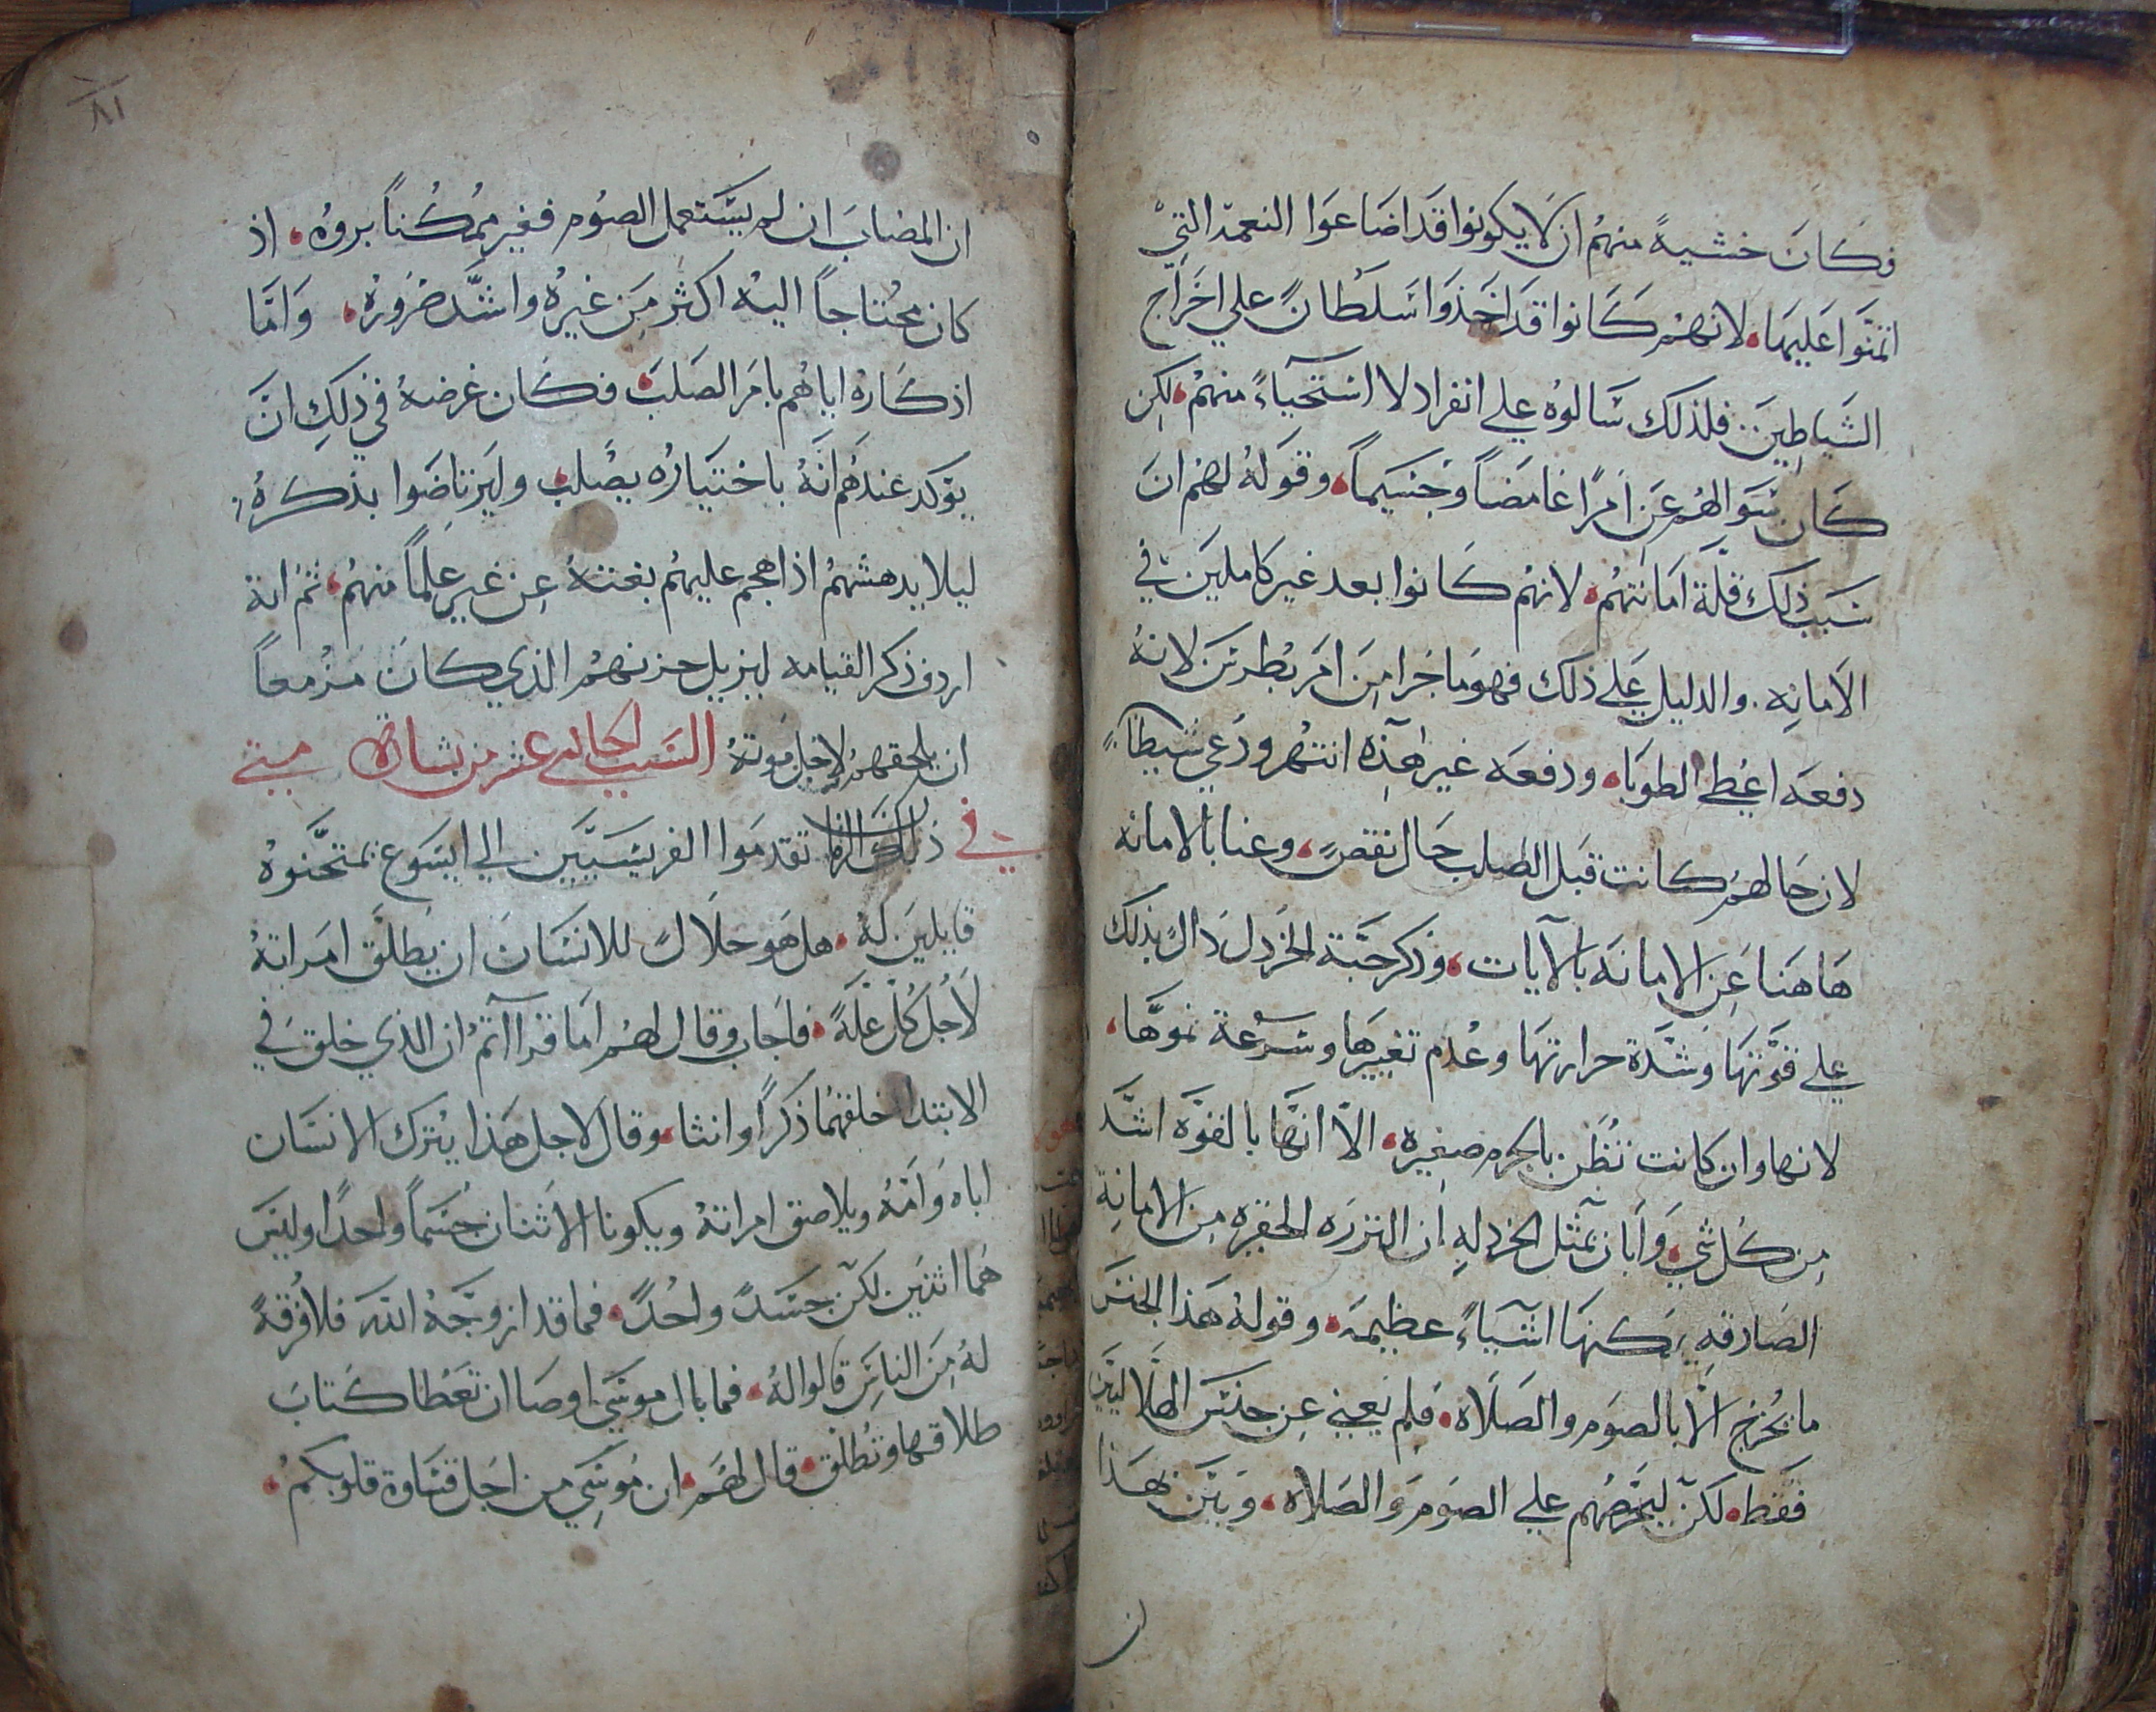 فكانَ خشيةً منهمُ ان لايكونوا قد اضاعوا النعمة التيِ
اتمنوا عَليهَا، لانهم كانوا قد اخذوا سَلطانً علي اخراج
الشَياطِينَ. فلذلك سَالوهُ علي انفراد لا استحيآءً منهمُ، لكن
كان سَوالهُم عَن امرًا غامضاً وجسَيماً، وقولهُ لهمُ ان
سَبب ذلك قلّة امانتهُم، لانهُم كانوا بعد غير كاملين في
الامانه. والدليل علي ذلك فهوَ ماجرا مِن امر بُطرسَ لانهُ
دفعه اعُطي الطوبا، ودفعه غير هذِه انتهُر ودُعي شيطاً
لان حَالهُم كانت قبل الصلب حَال نقصٍ، وعنا بالامانه
هَاهنا عَن الامانه بالآيات، وذكر حبّة الخردل دَالً بذلك
علي قوّتهَا وشدّة حرارتهَا وعُدم تغييرهَا وسُرعة نموّها،
لانها وان كانت تُظَن بالجرم صغيره، الاّ انهَّا بالقوّه اشدّ
مِن كُل شي، وَابان بمثل الخردلهِ ان النزره الحقيره مِن الامانةِ
الصَادقهِ يمكنهَا اشيآءً عظيمه، وقولهُ هَذا الجنسَ
ما يُخرج الّا بالصوم والصَلاه، فلم يَعني عن جنسَ الهلاليّين
فقط، لكنّ ليحرّضهُم علي الصوم والصَلاه، وبيّن بهذا
ان
٨١
ان المصابَ ان لم يسَتعمل الصوُم فغير ممُكُناً بروُهُ، اذ
كان محُتاجاً اليهُ اكثر مِن غيرهُ واشدّ ضرُورهُ، وَامّا
اذكَارهُ اياهُم بامَر الصَلبَ، فكان غرضهُ في ذلكِ انّ
يوكد عندهُم انّهُ باختيارهُ يصُلب، وليرتاضَوا بذكرهُ،
ليلا يدهشهُم اذا هجم عليهُم بغتةً عِن غير عِلماً منهمُ، ثمُ انهُ
اردف ذكر القيامه ليزيل حزنهمُ الذي كانَ مزُمعاً
ان يلحقهُم لاجل مَوتهُ السَبت الحادي عشر من بشارة متي
في ذلكَ الزمان تقدموا الفريسَيّين الي ايسَوع يمتحّنوهُ
قايلين لهُ، هل هَو حلَالً للانسَان ان يَطلّق امَراتهُ
لأجُل كُل عَلّةً، فاجَاب وقال لهمُ امَا قرااتمُ ان الذي خلق في
الابتدا خلقهُما ذكَرًا وانثا، وقال لاجل هَذا يتُرك الانسَان
اباه وَامّهُ ويلاصق امراتهُ ويكونا الاثنان جُسَماً واحدًا وليسَ
همُا اثنين لكنّ جسَدً واحُدً، فما قد ازوّجهُ اللّه فلا فُرقةً
لهُ مِنَ الناسَِ قالوا لهُ، فما بال موسَي اوصا ان تَعُطا كتابَ
طلاقها وتُطلق، قال لهَم، ان مُوسَي من اجَل قسَاوة قلوبكمُ،